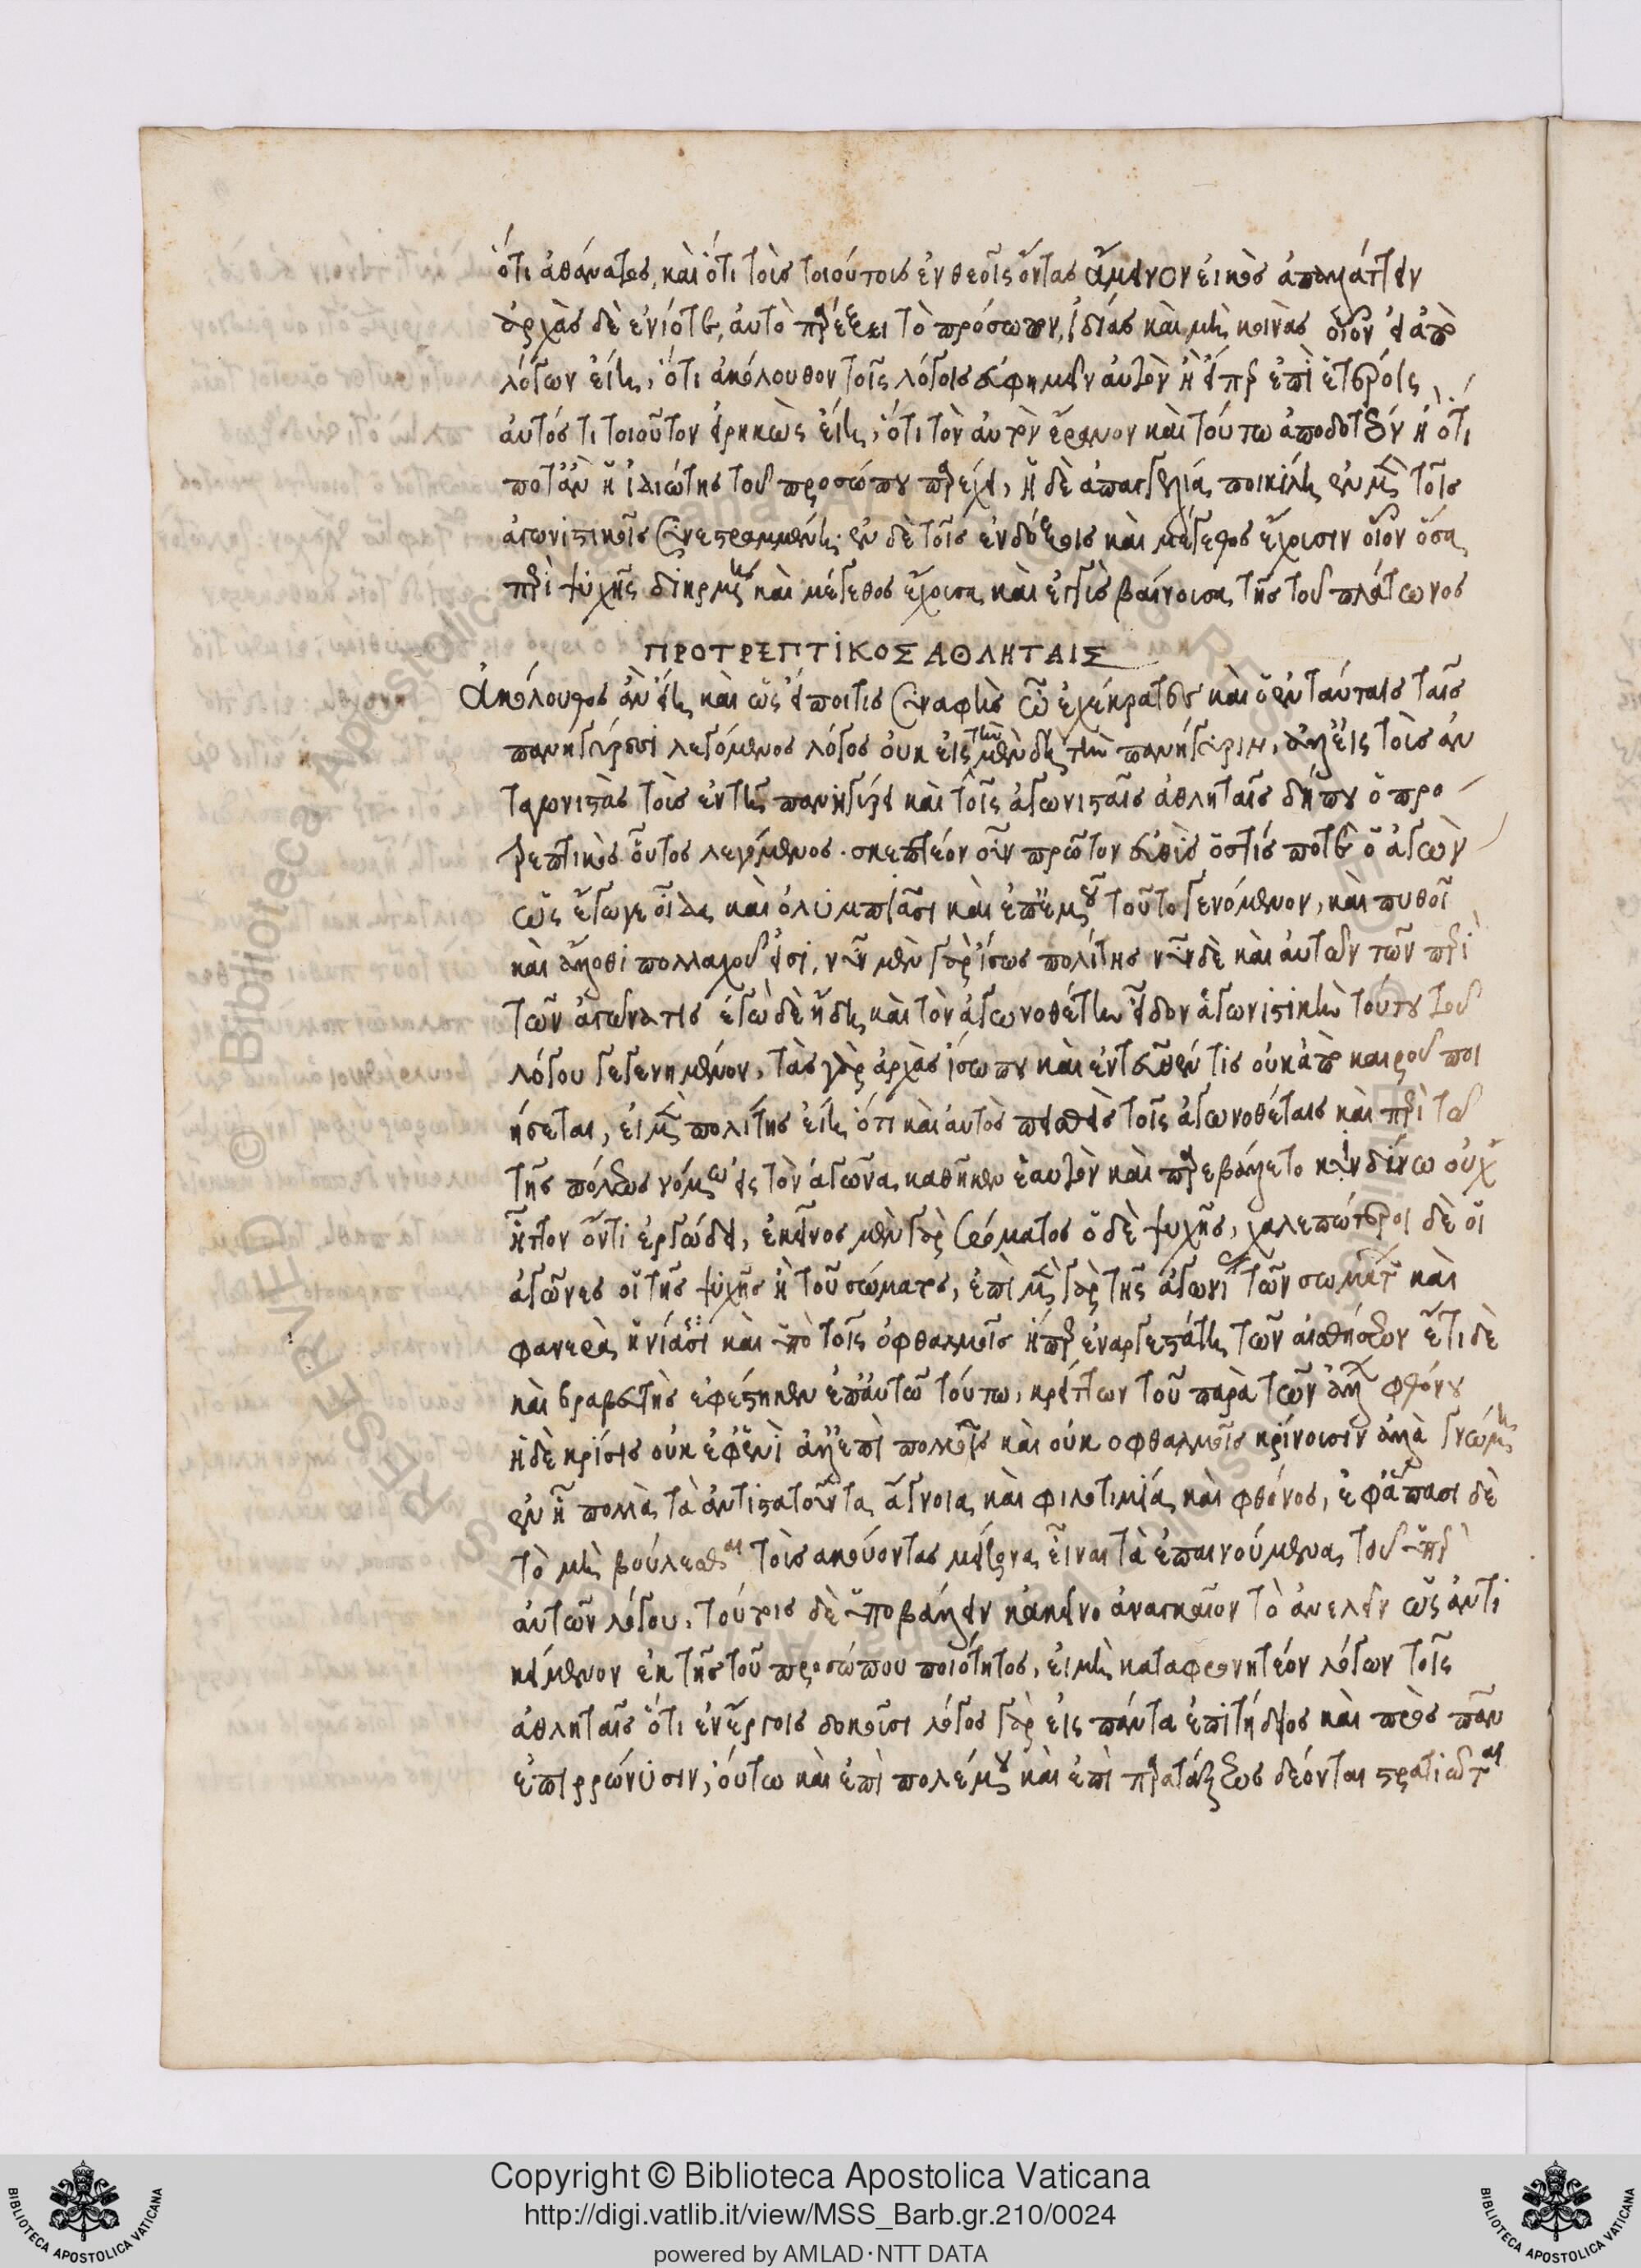 ὅτι ἀθάνατος, καὶ ὅτι τοὺς τοιούτους ἐν θεοῖς ὄντας ἄμεινον εἰκὸς ἀπαλάττειν
ἀρχὰς δὲ ἐνίοτε, αὐτὸ παρέξει τὸ πρόσωπον, ἰδίας καὶ μὴ κοινὰς οἷον εἰ ἀπὸ
λόγων εἴη, ὅτι ἀκόλουθον τοῖς λόγοις εὐφημεῖν αὐτὸν ἢ εἴπερ ἐπὶ ἑτέροις
αὐτός τι τοιοῦτον εἰρηκὼς εἴη, ὅτι τὸν αὐτὸν ἔρανον καὶ τούτω ἀποδοτέον ἢ ὅτι
ποτ' ἂν ἡ ἰδιώτης τοῦ προσώπου παρέχει, ἡ δὲ ἀπαγγελία ποικίλη ἐν μὲν τοῖς
ἀγωνιστικοῖς συνεστραμμένη. ἐν δὲ τοῖς ἐνδόξοις καὶ μέγεθος ἔχουσιν οἷον ὅσα
περὶ ψυχῆς διηρμένη καὶ μέγεθος ἔχουσα καὶ ἐγγὺς βαίνουσα τῆς τοῦ πλάτωνος
ΠΡΟΤΡΕΠΤΙΚΟΣ ΑΘΛΗΤΑΙΣ
Ἀκόλουθος ἂν εἴη καὶ ὡς εἴποι τις συναφὴς ὦ ἐχέκρατες καὶ ὁ ἐν ταύταις ταῖς
πανηγύρεσι λεγόμενος λόγος οὐκ εἰς τὴν μὲν δὴ τὴν πανήγυριν, ἀλλ' εἰς τοὺς ἀν
ταγωνιστὰς τοὺς ἐν τῇ πανηγύρει καὶ τοῖς ἀγωνισταῖς ἀθληταῖς δήπου ὁ προ
τρεπτικὸς οὗτος λεγόμενος. σκεπτέον οὖν πρῶτον εὐθὺς ὅστις ποτὲ ὁ ἀγὼν
ὡς ἔγωγε οἶδα καὶ ὀλυμπιᾶσι καὶ ἐπ' ἐμοῦ τοῦτο γενόμενον, καὶ πυθοῖ
καὶ ἄλλοθι πολλαχοῦ εἰσὶ, νῦν μὲν γὰρ ἴσως πολίτης νῦν δὲ καὶ αὐτῶν τῶν περὶ
τῶν ἀγῶνά τις ἐγὼ δὲ ἤδη καὶ τὸν ἀγωνοθέτην εἶδον ἀγωνιστικὴν τούτου τοῦ
λόγου γεγενημένον, τὰς γὰρ ἀρχὰς ἴσως που καὶ ἐντεῦθέν τις οὐκ ἀπὸ καιροῦ ποι
ήσεται, εἰ μὲν πολίτης εἴη ὅτι καὶ αὐτὸς πεισθεὶς τοῖς ἀγωνοθέταις καὶ περὶ τοῦ
τῆς πόλεως νόμω εἰς τὸν ἀγῶνα καθῆκεν ἑαυτὸν καὶ παρεβάλλετο κινδύνω οὐχ
ἧττον ὄντι ἐργώδει, ἐκεῖνος μὲν γὰρ σώματος ὁ δὲ ψυχῆς, χαλεπώτεροι δὲ οἱ
ἀγῶνες οἱ τῆς ψυχῆς ἢ τοῦ σώματος, ἐπὶ μὲν γὰρ τῆς ἀγωνίας τῶν σωμάτων καὶ
φανερὰ ἡ νίκη ἐστὶ καὶ ὑπὸ τοῖς ὀφθαλμοῖς ἥπερ ἐναργεστάτη τῶν αἰσθήσεων ἔτι δὲ
καὶ βραβευτὴς ἐφέστηκεν ἐπ' αὐτῶ τούτω, κρείττων τοῦ παρὰ τῶν ἄλλων φθόνου
ἡ δὲ κρίσις οὐκ ἐφ' ἑνὶ ἀλλ' ἐπὶ πολλοῖς καὶ οὐκ ὀφθαλμοῖς κρίνουσιν ἀλλὰ γνώμης
ἐν ᾗ πολλὰ τὰ ἀντιστατοῦντα ἄγνοια καὶ φιλοτιμία καὶ φθόνος, ἐφ' ἅπασι δὲ
τὸ μὴ βούλεσθαι τοὺς ἀκούοντας μείζονα εἶναι τὰ ἐπαινούμενα τοῦ ὑπὲρ
αὐτῶν λόγου, τούτοις δὲ ὑποβάλλειν κἀκεῖνο ἀναγκαῖον τὸ ἀνελεῖν ὡς ἀντι
κείμενον ἐκ τῆς τοῦ προσώπου ποιότητος, εἰ μὴ καταφρονητέον λόγων τοῖς
ἀθληταῖς ὅτι ἐν ἔργοις δοκοῦσι λόγος γὰρ εἰς πάντα ἐπιτήδειος καὶ πρὸς πᾶν
ἐπιρρώνυσιν, οὕτω καὶ ἐπὶ πολέμου καὶ ἐπὶ παρατάξεως δέονται στρατιῶται
Copyright © Biblioteca Apostolica Vaticana
http://digi.vatlib.it/view/MSS_Barb.gr.210/0024
powered by AMLAD·NTT DATA
BIBLIOTECA APOSTOLICA VATICANA
BIBLIOTECA APOSTOLICA VATICANA